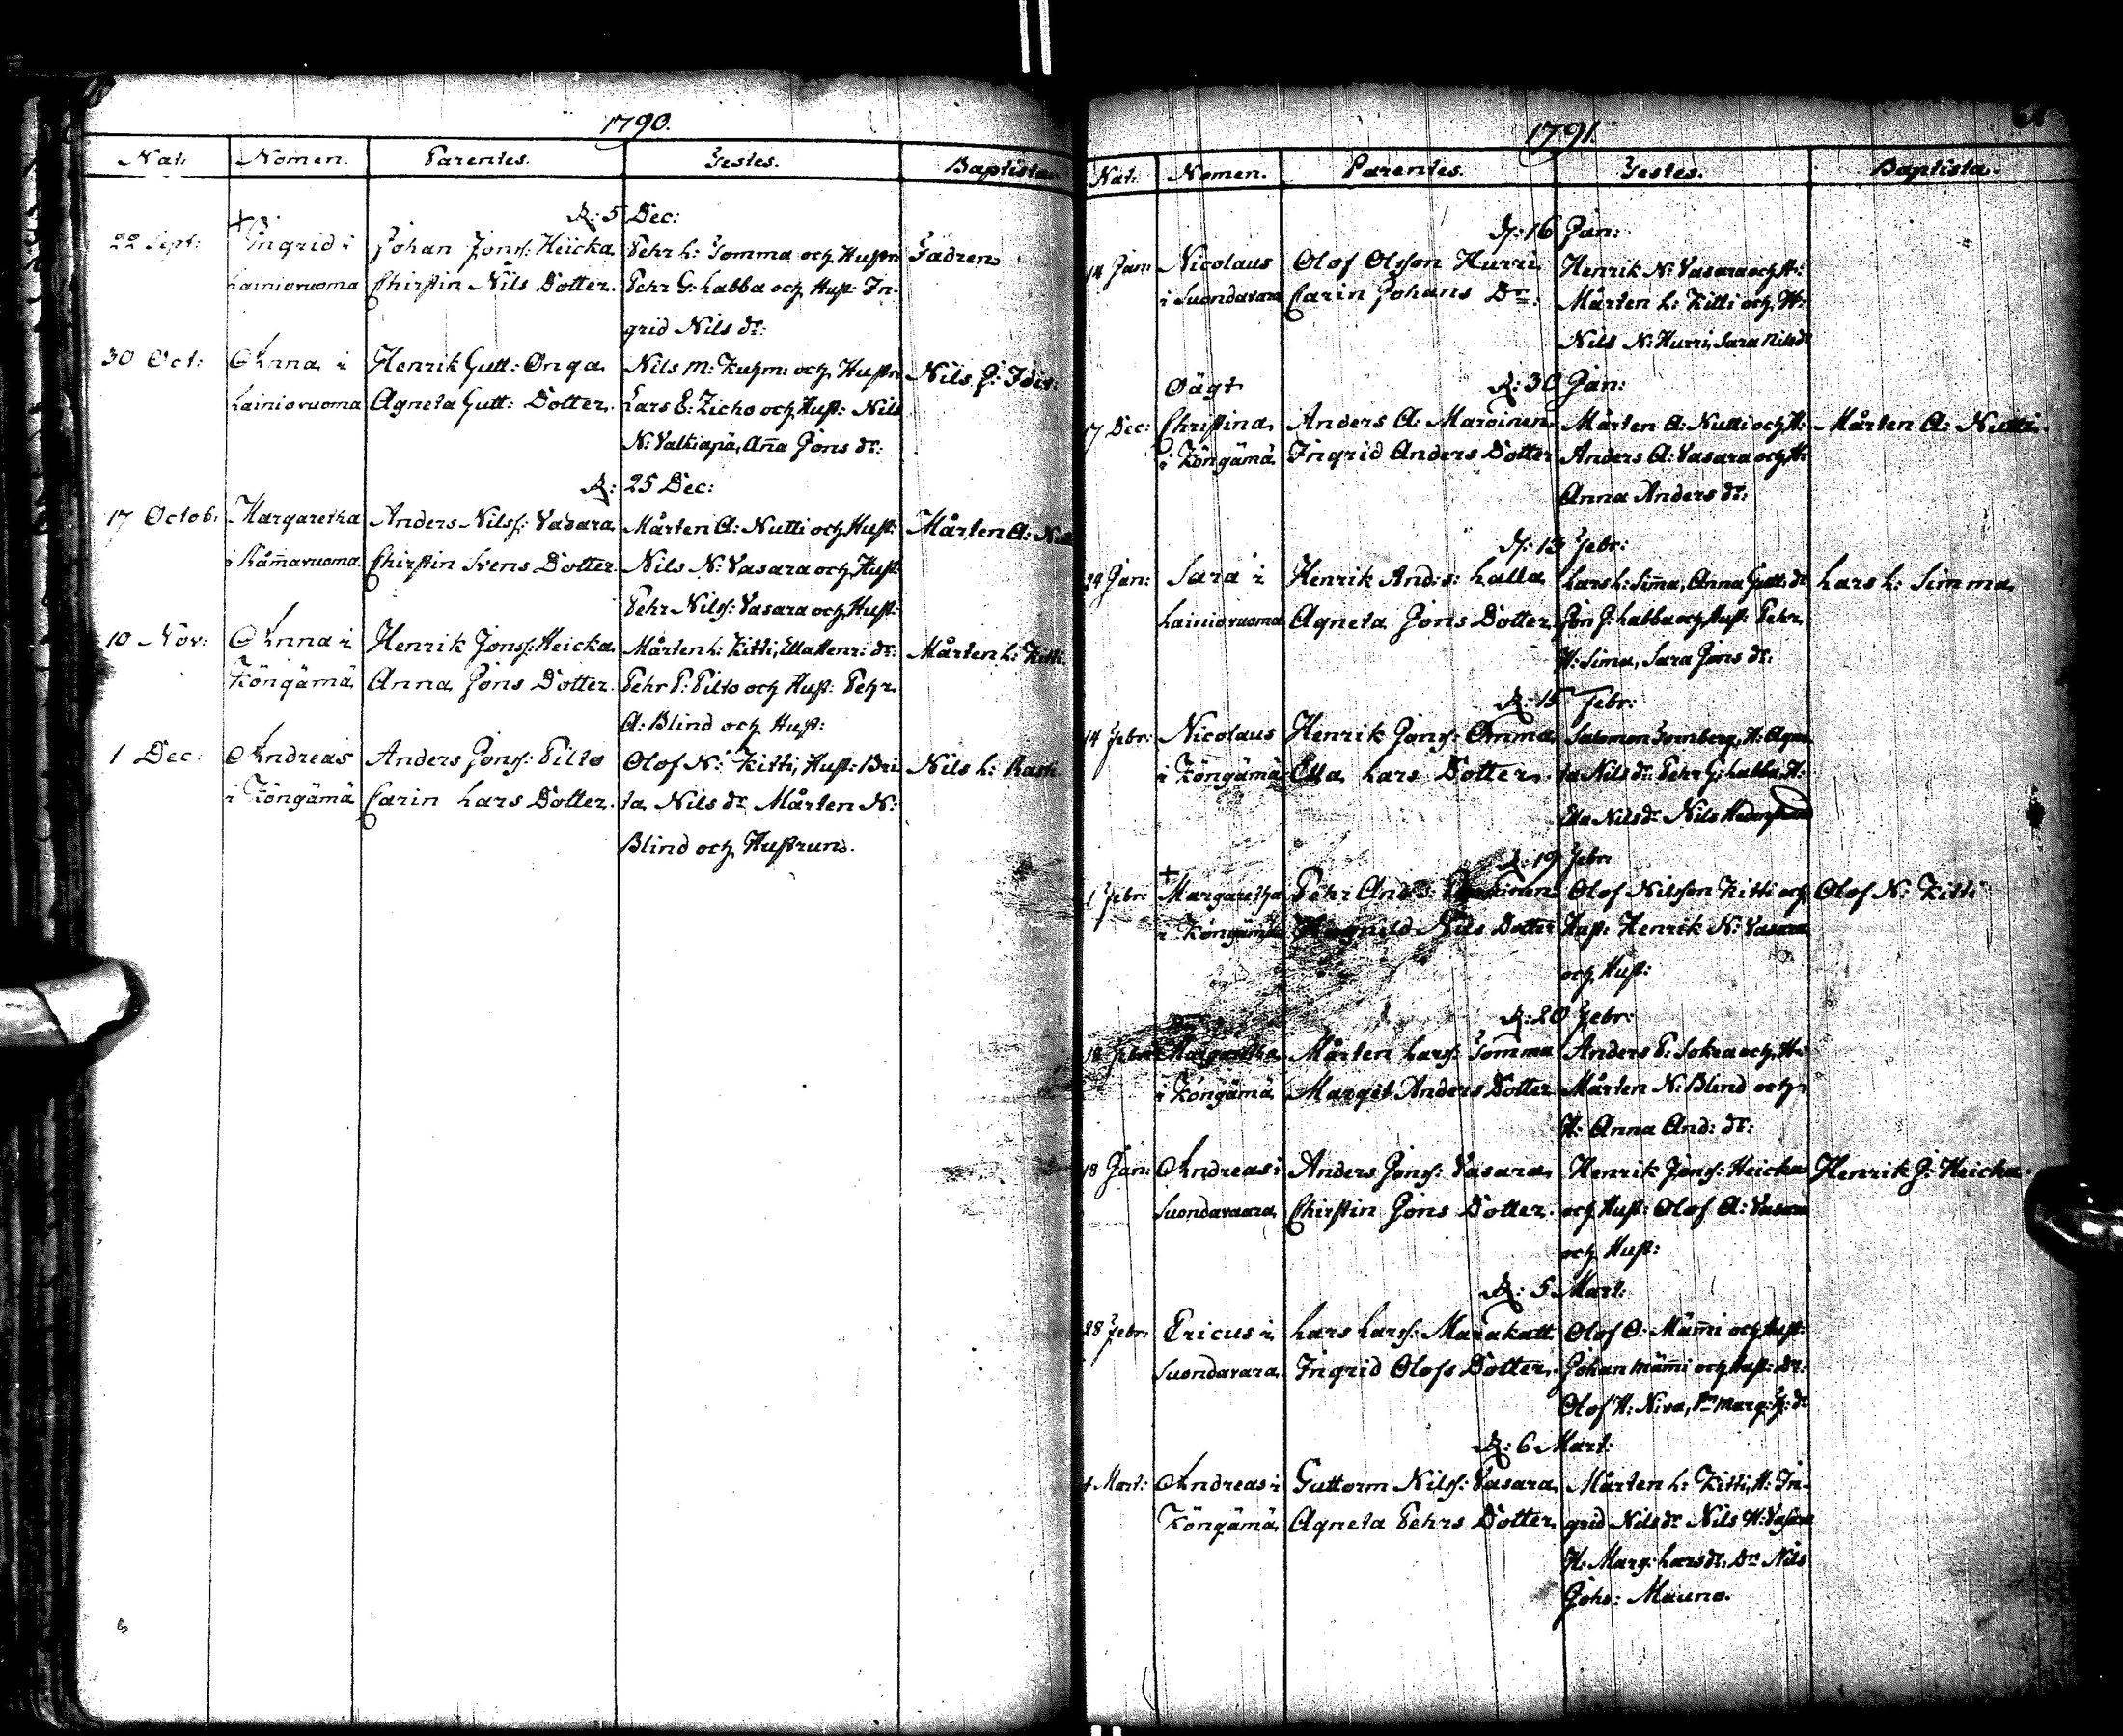 1790.
Nat: Nomen. Parentes. Testes. Baptista
R: 5 Dec:
22 Sept: + Ingrid i Johan Jonss: Heicka Pehr L: Tomma och Hustr: Fadren
Lainiovuoma Chirstin Nils Dotter. Pehr G: Labba och Hust: In-
grid Nils dr:
30 Oct: Anna i Henrik Gutt: Onga Nils M: Kuhm: och Hustr: Nils J:
Lainiovuoma Agneta Gutt: Dotter. Lars E: Zicko och Hust: Nils
N: Valkiapä, Aña Jons dr:
R: 25 Dec:
17 Octob: Margaretha Anders Nilss: Vasara Mårten A: Nutti och Hust: Mårten A:
i Råm̃avuoma Chirstin Svens Dotter Nils N: Vasara och Hust:
Pehr Nilss: Vasara och Hust:
10 Nov: Anna i Henrik Jonss: Heicka Mårten L: Kitti, Ella Henr: dr: Mårten L: Kitti
Köngämä Anna Jons Dotter. Pehr P: Pilto och Hust: Pehr
A: Blind och Hust:
1 Dec: Andreas Anders Jonss: Pilto Olof N: Kitti, Hust: Bri- Nils L: Rasti
i Köngämä Carin Lars Dotter. ta Nils dr Mårten N:
Blind och Hustrun.
1791.
Nat: Nomen. Parentes. Testes. Baptista.
R: 16 Jan:
14 Jan: Nicolaus Olof Olsson Hurri Henrik N: Vasara och H:
i Suondavara Carin Johans Dr: Mårten L: Kitti och H:
Nils N: Hurri, Sara Nils dr
Oägt R: 30 Jan:
17 Dec: Christina Anders A: Maroinen Mårten A: Nutti och H: Mårten A: Nutti.
i Köngämä Ingrid Anders Dotter Anders A: Vasara och H:
Anna Anders dr:
R: 13 Febr:
24 Jan: Sara i Henrik And: s: Lalla Lars L: Sim̃a, Anna Gutt: dr Lars L: Simma
Lainiovuoma Agneta Jons Dotter. Jon J: Labba och Hust: Pehr
H: Sima, Sara Jons dr:
R: 15 Febr:
14 Febr: Nicolaus Henrik Jonss: Omma Salomon Tornberg, H: Agne-
i Köngämä Ella Lars Dotter. ta Nils dr Pehr G: Labba, H:
Ella Nils dr Nils
R: 19 Febr:
1 Febr: + Margaretha Pehr And: s: Olof Nilsson Kitti och Olof N: Kitti
i Köngämä Nils Dotter Hust: Henrik N: Vasara
och Hust:
R: 20 Febr:
18 Febr: Margaretha Mårten Larss: Tomma Anders P: Sokea och H:
i Köngämä Margit Anders Dotter Mårten N: Blind och
H: Anna And: dr:
18 Jan: Andreas i Anders Jonss: Vasara Henrik Jonss: Heicka Henrik J: Heicka.
Suondavaara Chirstin Jons Dotter. och Hust: Olof A: Vasara
och Hust:
R: 5 Mart:
28 Febr: Ericus i Lars Larss: Marakatt Olof O: Mäm̃i och Hust:
Suondavara Ingrid Olofs Dotter. Johan Mäm̃i och Hust: Dr:
Olof H: Niva, Marg: J: dr
R: 6 Mart:
4 Mart: Andreas i Guttorm Nilss: Vasara Mårten L: Kitti, H: In-
Köngämä Agneta Pehrs Dotter. grid Nils dr Nils H: Vasara
H: Marg: Lars dr. Dr: Nils
Johs: Mauno.